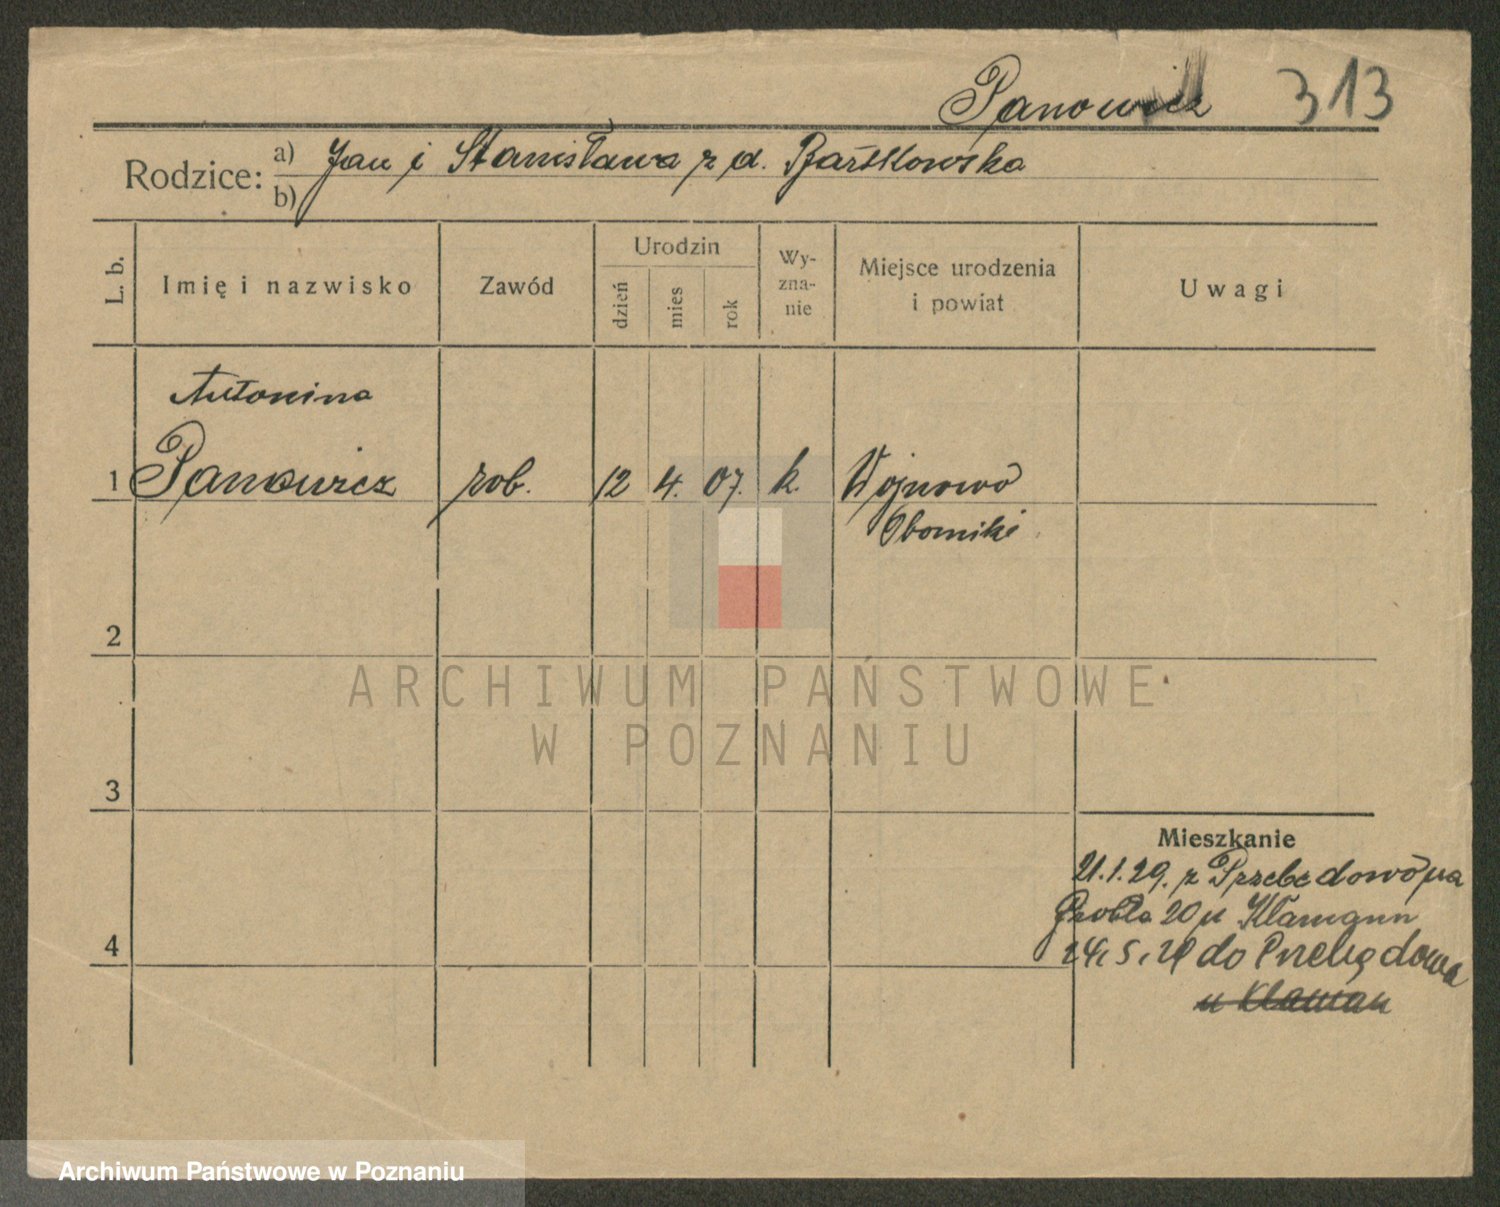 Panowicz 313
Rodzice: a) Jan i Stanisława z d. Bartkowska
b)
L. b. Imię i nazwisko Zawód Urodzin dzień mies rok Wy-zna-nie Miejsce urodzenia i powiat Uwagi
Antonina
1 Panowicz rob. 12 4. 07. k. Wojnowo
Oborniki
2
ARCHIWUM PAŃSTWOWE
W POZNANIU
3
Mieszkanie
21.1.29. z Przebędowo na
Grobla 20 u
4
24.5.29 do Przebędowa
Archiwum Państwowe w Poznaniu